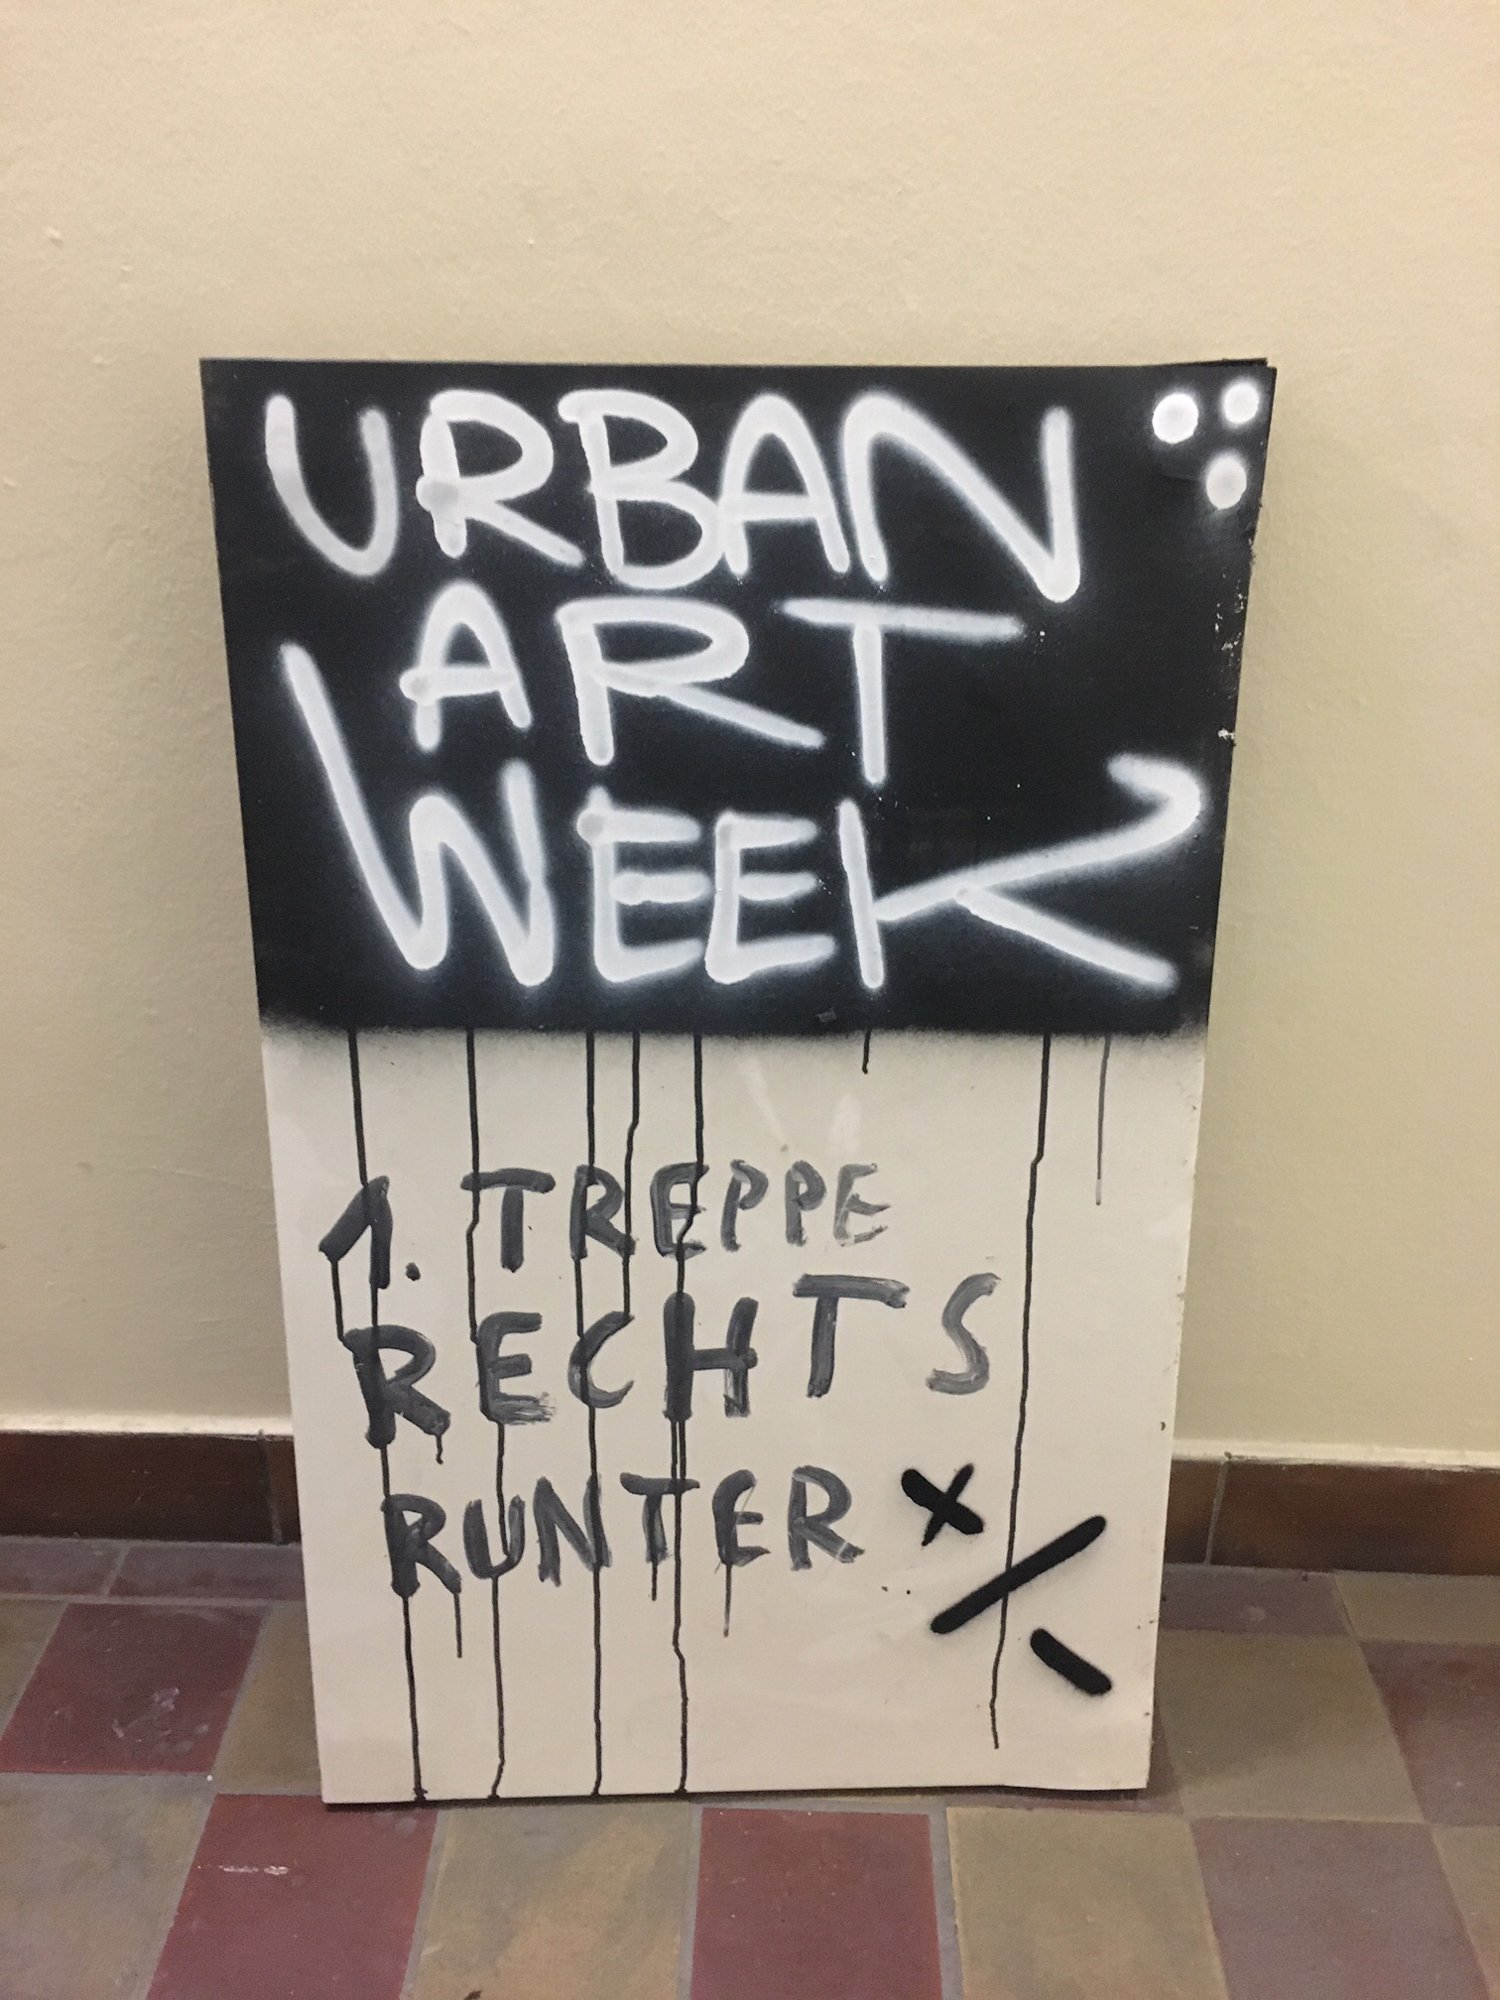 URBAN
ART
WEEK
1. TREPPE
RECHTS
RUNTER